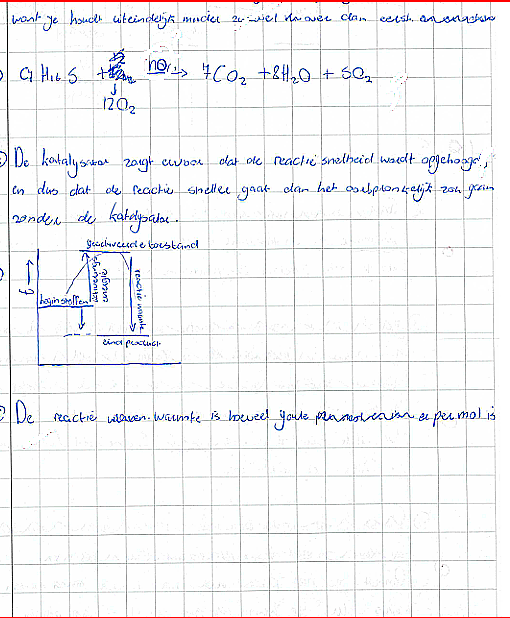 want je houdt uiteindelijk minder zwavel er over dan eerst
C7 H16 S + → 7CO2 + 8H2O + SO2
12O2
De katalysator zorgt ervoor dat de reactie snelheid wordt opgehoogd,
en dus dat de reactie sneller gaat dan het oorspronkelijk zou gaan
zonder de katalysator.
geactiveerde toestand
E →
beginstoffen
activerings energie
reactie warmte
eind product
De reactie warmte is hoeveel joule er per mol is